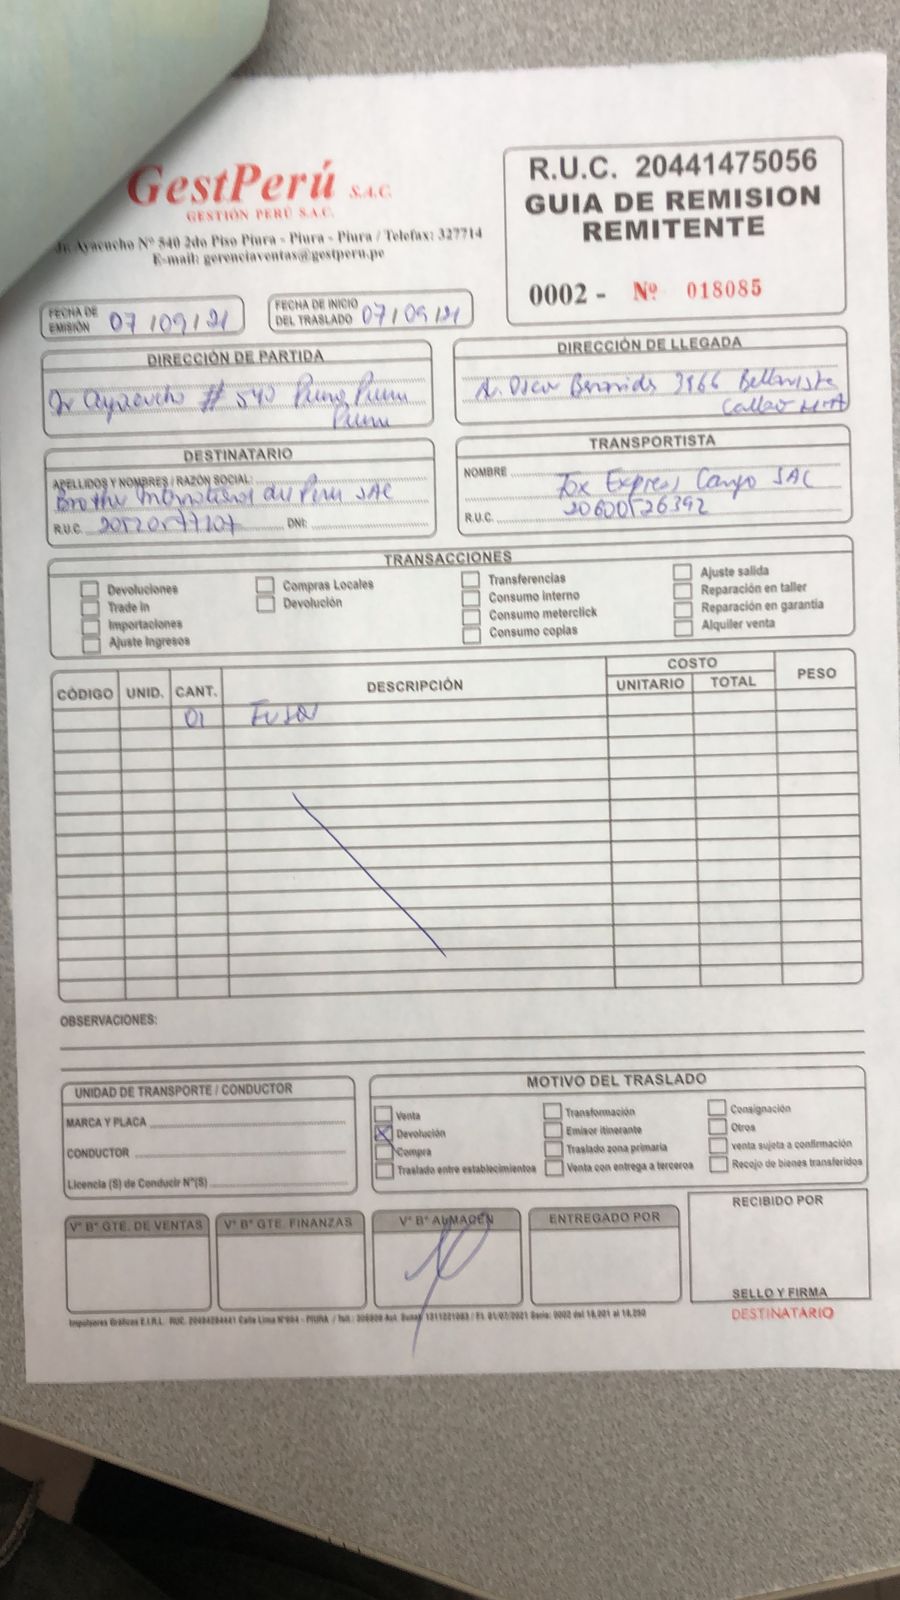 GestPerú S.A.C.
GESTIÓN PERÚ S.A.C.
Jr. Ayacucho Nº 540 2do Piso Piura - Piura - Piura / Telefax: 327714
E-mail: gerenciaventas@gestperu.pe
R.U.C. 20441475056
GUIA DE REMISION
REMITENTE
0002 - Nº 018085
FECHA DE EMISIÓN 07/09/21
FECHA DE INICIO DEL TRASLADO 07/09/21
DIRECCIÓN DE PARTIDA
Jr Ayacucho # 540 Piura Piura
Piura
DIRECCIÓN DE LLEGADA
Av. Oscar Benavides 3866 Bellavista
Callao
DESTINATARIO
APELLIDOS Y NOMBRES / RAZÓN SOCIAL:
Brother International del Peru SAC
R.U.C. DNI:
TRANSPORTISTA
NOMBRE Fox Express Cargo SAC
R.U.C. 20600526392
TRANSACCIONES
Devoluciones
Trade in
Importaciones
Ajuste Ingresos
Compras Locales
Devolución
Transferencias
Consumo interno
Consumo meterclick
Consumo copias
Ajuste salida
Reparación en taller
Reparación en garantia
Alquiler venta
CÓDIGO UNID. CANT. DESCRIPCIÓN COSTO UNITARIO TOTAL PESO
01 Fusor
OBSERVACIONES:
UNIDAD DE TRANSPORTE / CONDUCTOR
MARCA Y PLACA
CONDUCTOR
Licencia (S) de Conducir Nº(S)
MOTIVO DEL TRASLADO
Venta
Devolución
Compra
Traslado entre establecimientos
Transformación
Emisor itinerante
Traslado zona primaria
Venta con entrega a terceros
Consignación
Otros
venta sujeta a confirmación
Recojo de bienes transferidos
Vº Bº GTE. DE VENTAS
Vº Bº GTE. FINANZAS
Vº Bº ALMACÉN
ENTREGADO POR
RECIBIDO POR
SELLO Y FIRMA
DESTINATARIO
Impulsores Gráficos E.I.R.L. RUC. 20484284441 Calle Lima Nº694 - PIURA / F.I. 01/07/2021 Serie: 0002 del 18,001 al 18,250